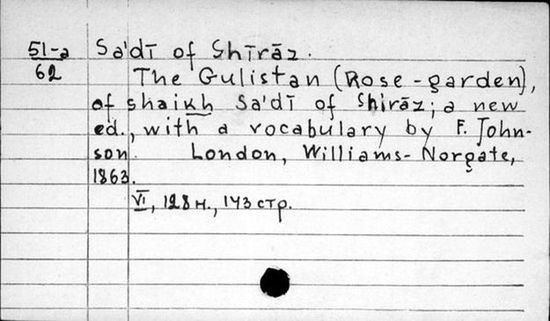 51-а Sa'dī of Shīrāz.
62 The Gulistan (Rose-garden),
of shaikh Sa'dī of Shirāz; a new
ed., with a vocabulary by F. John-
son. London, Williams-Norgate,
1863.
VI, 128 н., 143 стр.